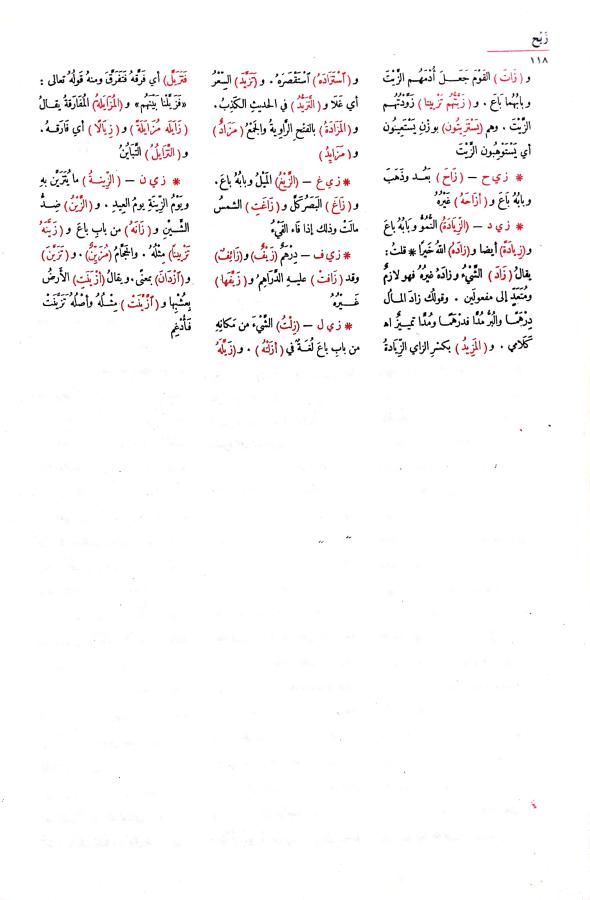 زيح
١١٨
و (زَاتَ) القَوْمَ جَعَلَ أُدْمَهُم الزَّيْتَ
وبابُهُما بَاعَ . و (زَيَّتَهُم تَزْيِيتًا) زَوَّدَهُم
الزَّيْتَ . وهم (يَسْتَزِيتُون) بوَزْنِ يَسْتَعِينُون
أي يَسْتَوْهِبُون الزَّيْتَ
* زي ح – (زَاحَ) بَعُدَ وذَهَبَ
وبابُه بَاعَ و (أَزَاحَهُ) غَيْرُهُ
* زي د – (الزِّيَادَةُ) النُّمُوُّ وبابُه بَاعَ
و (زِيَادَةً) أيضا و (زَادَهُ) اللهُ خَيْرًا * قلتُ:
يقالُ (زَادَ) الشَّيْءُ وزادَهُ غيرُهُ فهو لازمٌ
ومُتَعَدٍّ إلى مفعولين . وقولُك زادَ المالُ
دِرْهَمًا والبُرُّ مُدًّا فدرهَمًا ومُدًّا تمييزٌ اه
كَلامي . و (المَزِيدُ) بكسرِ الزاي الزِّيَادَةُ
و (اسْتَزَادَهُ) اسْتَقْصَرَهُ . و (تَزَيَّدَ) السِّعْرُ
أي غَلَا و (التَّزَيُّدُ) في الحديثِ الكَذِبُ .
و (المَزَادَةُ) بالفتح الرَّاوِيةُ والجَمْعُ (مَزَادٌ)
و (مَزَايِدُ)
* زي غ – (الزَّيْغُ) المَيْلُ وبابُه بَاعَ .
و (زَاغَ) البَصَرُ كَلَّ و (زَاغَتِ) الشمسُ
مالَتْ وذلك إذا فَاءَ الفَيْءُ
* زي ف – دِرْهَمٌ (زَيْفٌ) و (زَائِفٌ)
وقد (زَافَتْ) عليهِ الدَّرَاهِمُ و (زَيَّفَها)
غَيْرُهُ
* زي ل – (زِلْتُ) الشَّيْءَ من مَكانِهِ
من بابِ باعَ لُغَةٌ في (أَزَلْتُهُ) . و (زَيَّلَهُ
فَتَزَيَّلَ) أي فَرَّقَهُ فَتَفَرَّقَ ومنه قَولُهُ تعالى :
«فَزَيَّلْنَا بَيْنَهُم» و (المُزَايَلَةُ) المُفَارَقةُ يقالُ
(زَايَلَه مُزَايَلَةً) و (زِيَالًا) أي فَارَقَهُ .
و (التَّزَايُلُ) التَّبَايُنُ
* زي ن – (الزِّينَةُ) ما يُتَزَيَّنُ بِهِ
ويَوْمُ الزِّينَةِ يومُ العِيدِ . و (الزَّيْنُ) ضِدُّ
الشَّيْنِ و (زَانَهُ) من بابِ بَاعَ و (زَيَّنَهُ
تَزْيِينًا) مِثْلُهُ . والحَجَّامُ (مُزَيِّنٌ) . و (تَزَيَّنَ)
و (ازْدَانَ) بمعنًى . ويقالُ (أَزْيَنَتِ) الأَرضُ
بِعُشْبِها و (ازَّيَّنَتْ) مِثْلُهُ وأصْلُهُ تَزَيَّنَتْ
فَأُدْغِمَ